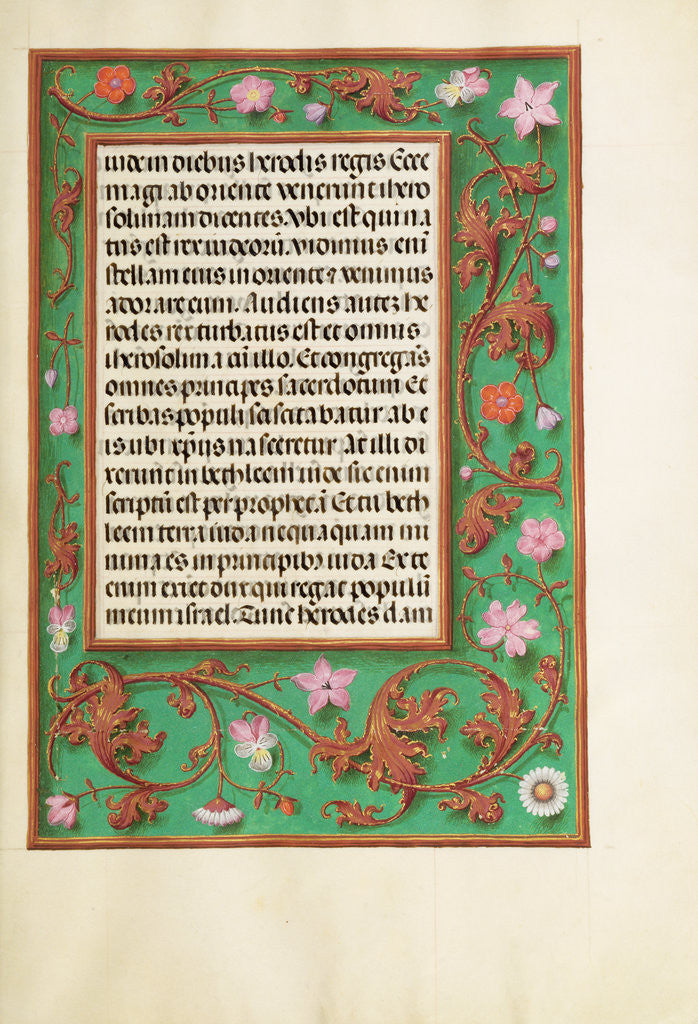 iude in diebus herodis regis Ecce
magi ab oriente venerunt ihero
solimam dicentes. Vbi est qui na
tus est rex iudeorū. Vidimus enī
stellam eius in oriente ⁊ venimus
adorare eum. Audiens autez he
rodes rex turbatus est et omnis
iherosolima cū illo. Et congregās
omnes principes sacerdotum Et
scribas populi sciscitabatur ab e
is ubi xp̄us nasceretur At illi di
xerunt in bethleem iude sic enim
scriptū est per prophetā Et tu beth
leem terra iuda nequaquam mi
nima es in principibꝫ iuda Ex te
enim exiet dux qui regat populū
meum israel. Tunc herodes clam